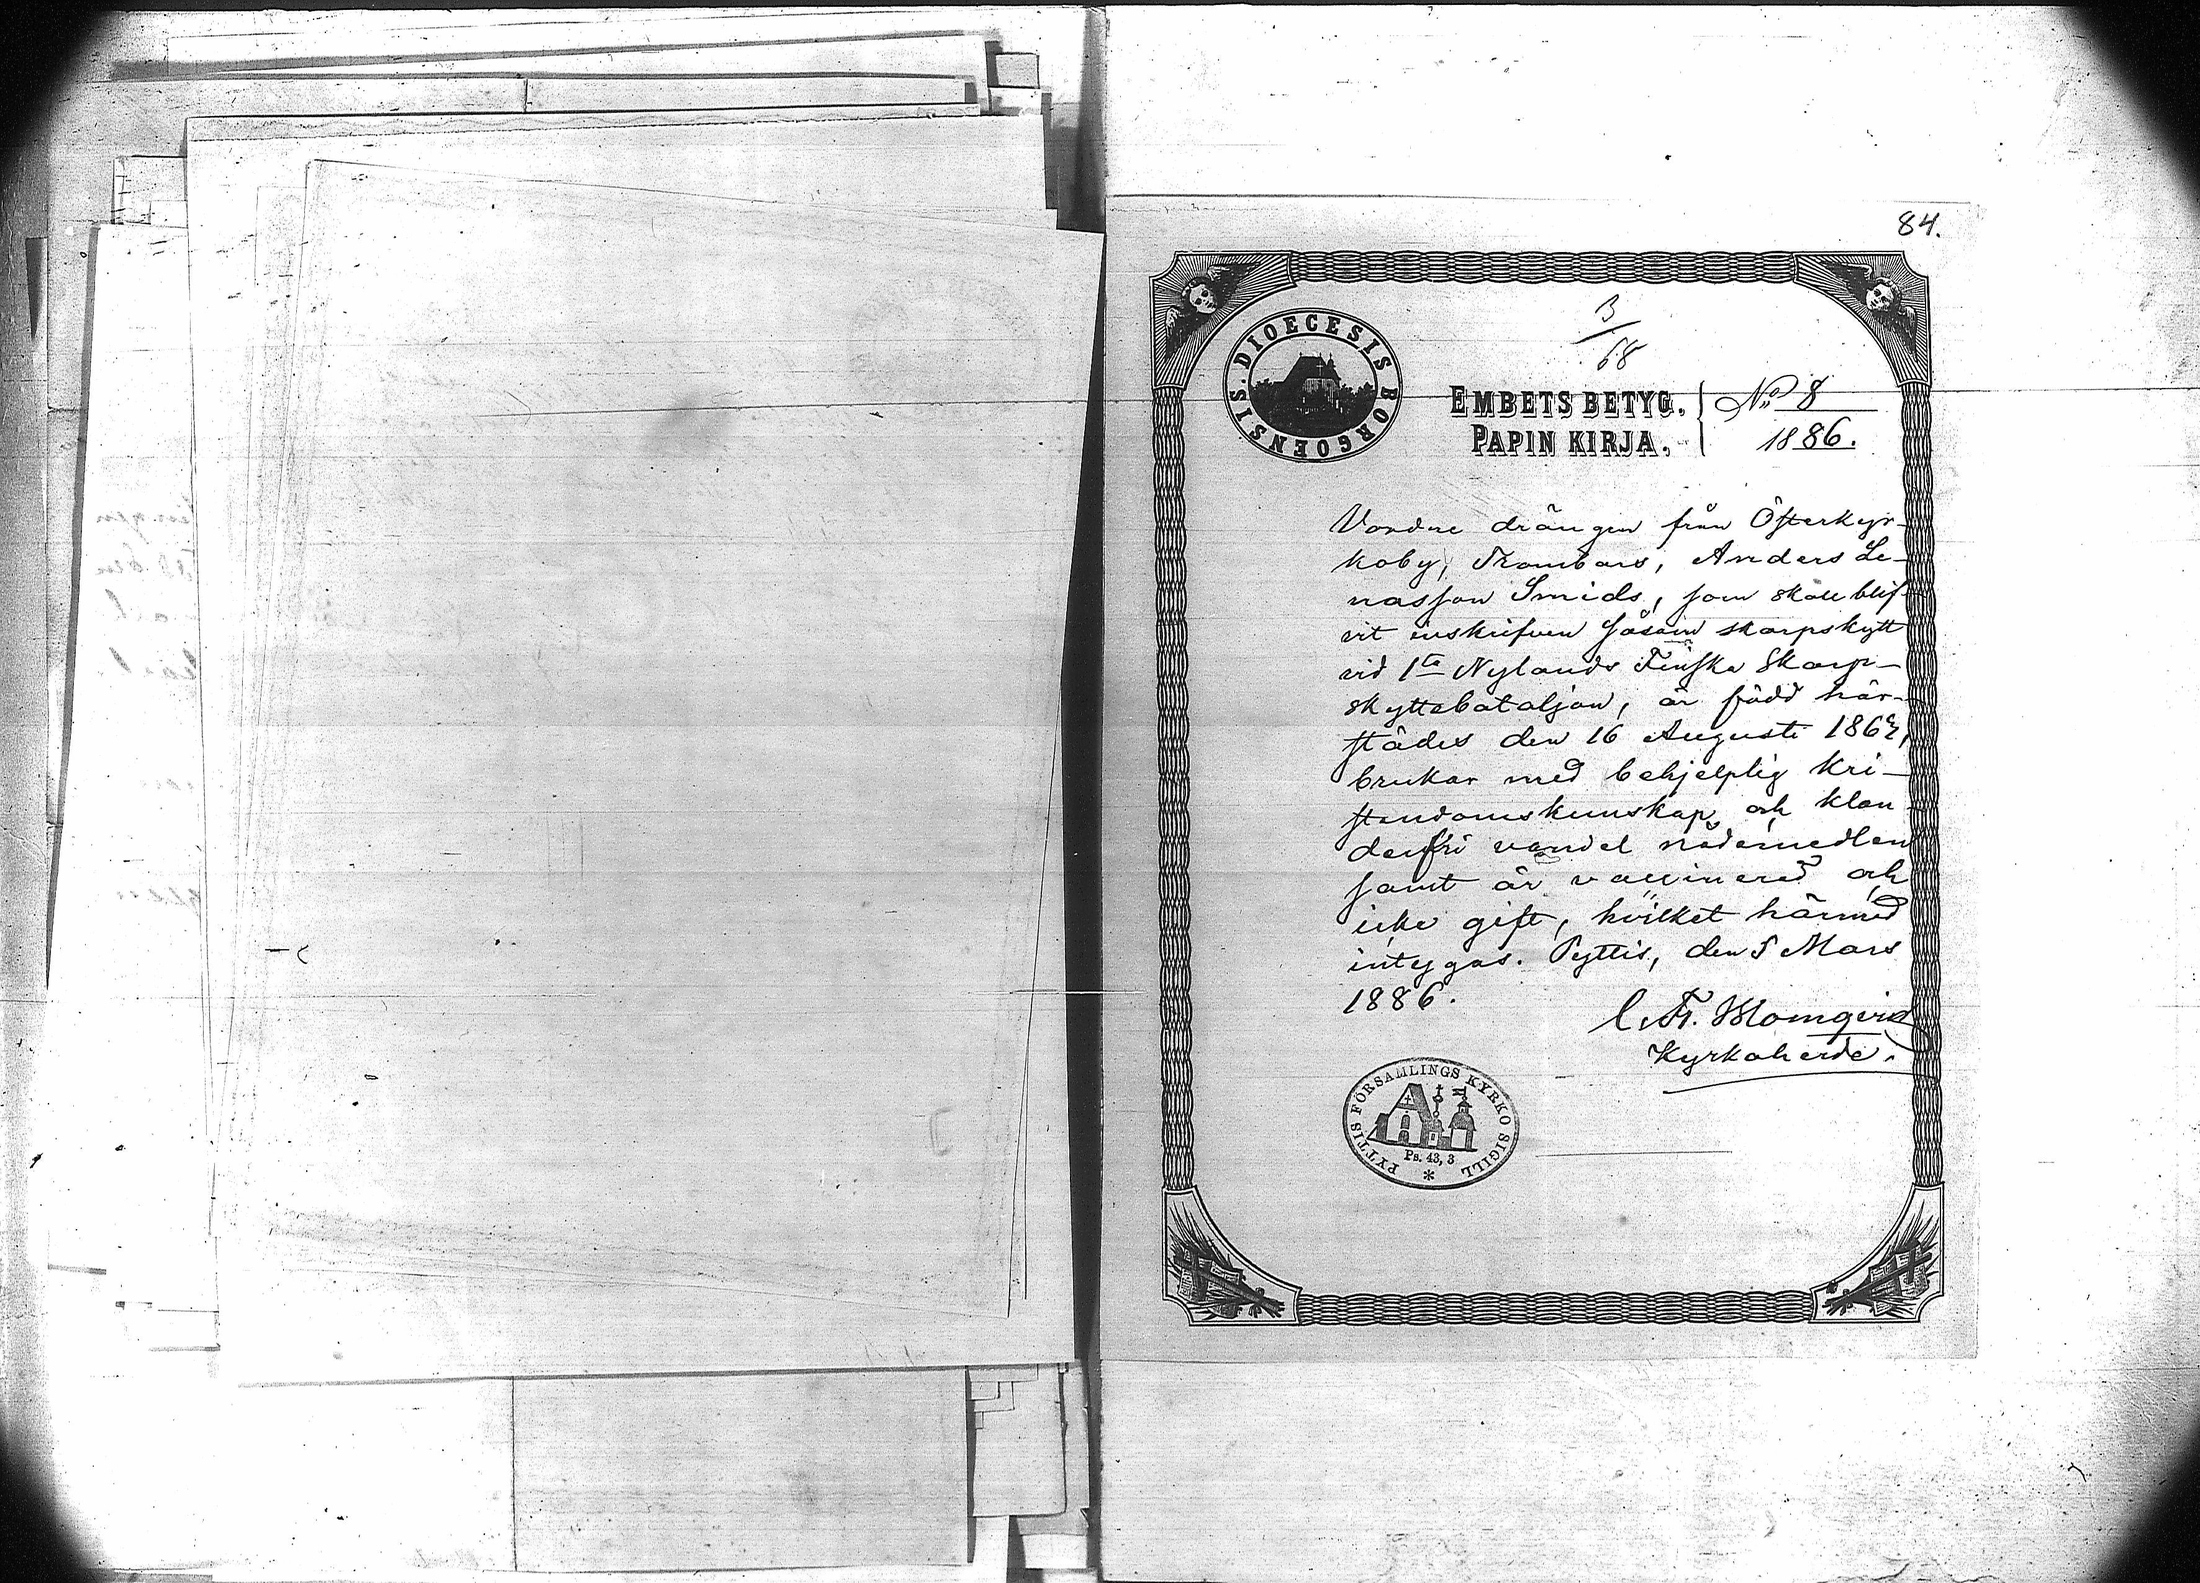 84.
3
68
DIOECESIS BORGOENSIS.
EMBETS BETYG.
PAPIN KIRJA.
No 8
1886.
drängen från Österkyr-
koby, Anders Le-
nasson Smids, som skall blif-
vit inskrifven såsom skarpskytt
vid 1ta Nylands Finska Skarp-
skyttebataljon, är född här-
städes den 16 Augusti
brukar med behjelplig kri-
stendomskunskap och klan-
derfri vandel nådemedlen
samt är vaccinerad och
icke gift, hvilket härmed
intygas. Pyttis, den 5 Mars
1886.
C. Fr. Blomqvist
Kyrkoherde.
PYTTIS FÖRSAMLINGS KYRKO SIGILL
Ps. 43, 3